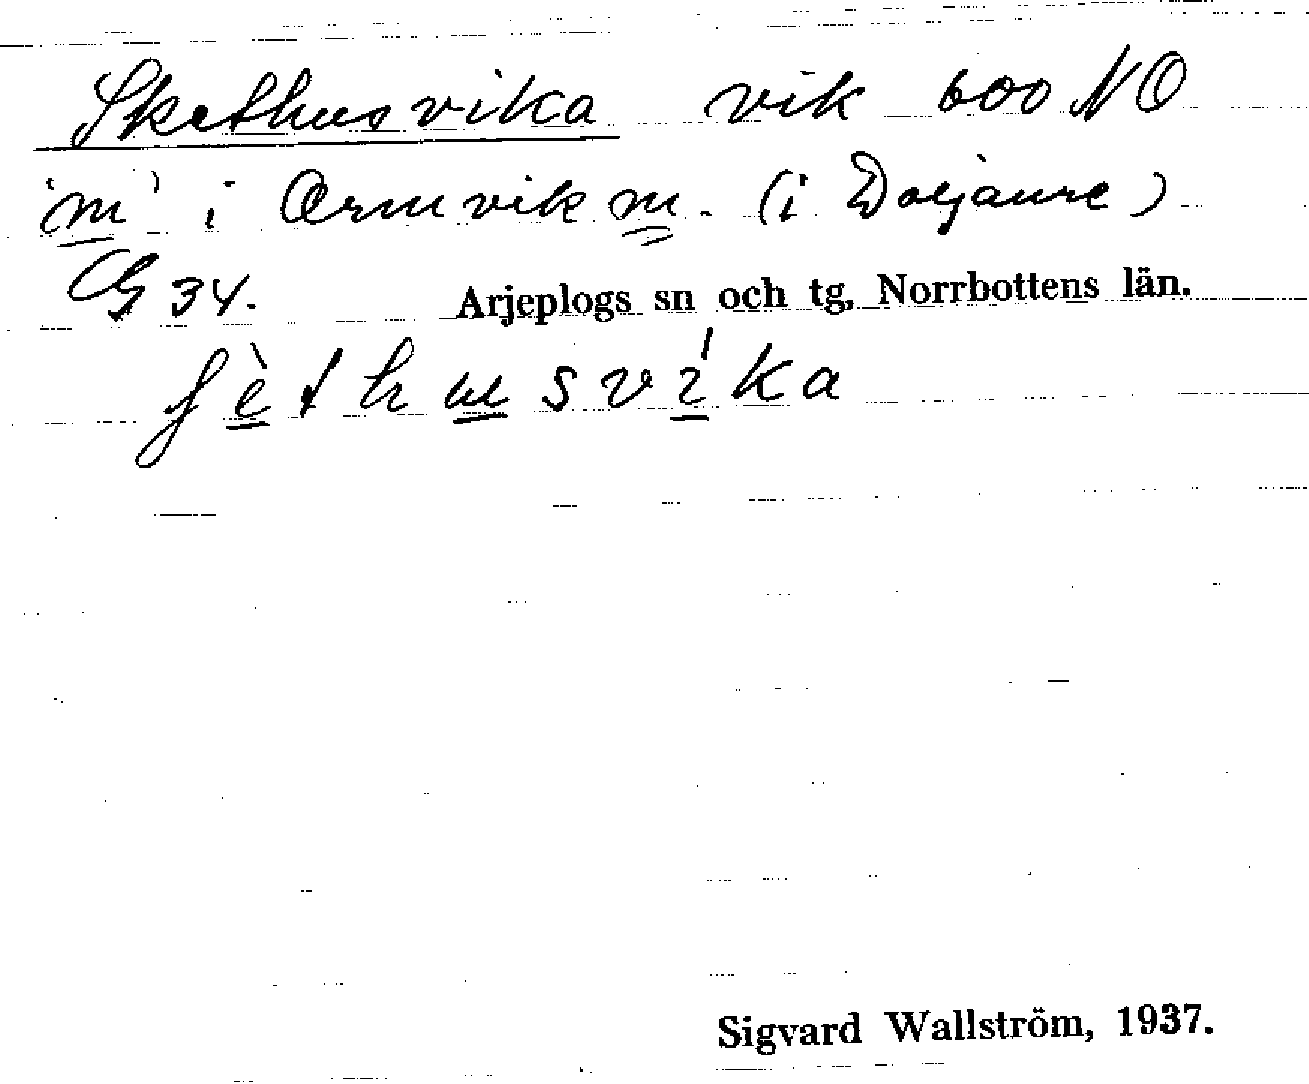 Skethusvika vik 600 NO
'm' i Ormvik m. (i Doljaure)
G 34. Arjeplogs sn och tg, Norrbottens län.
ʃèthusvíka
Sigvard Wallström, 1937.